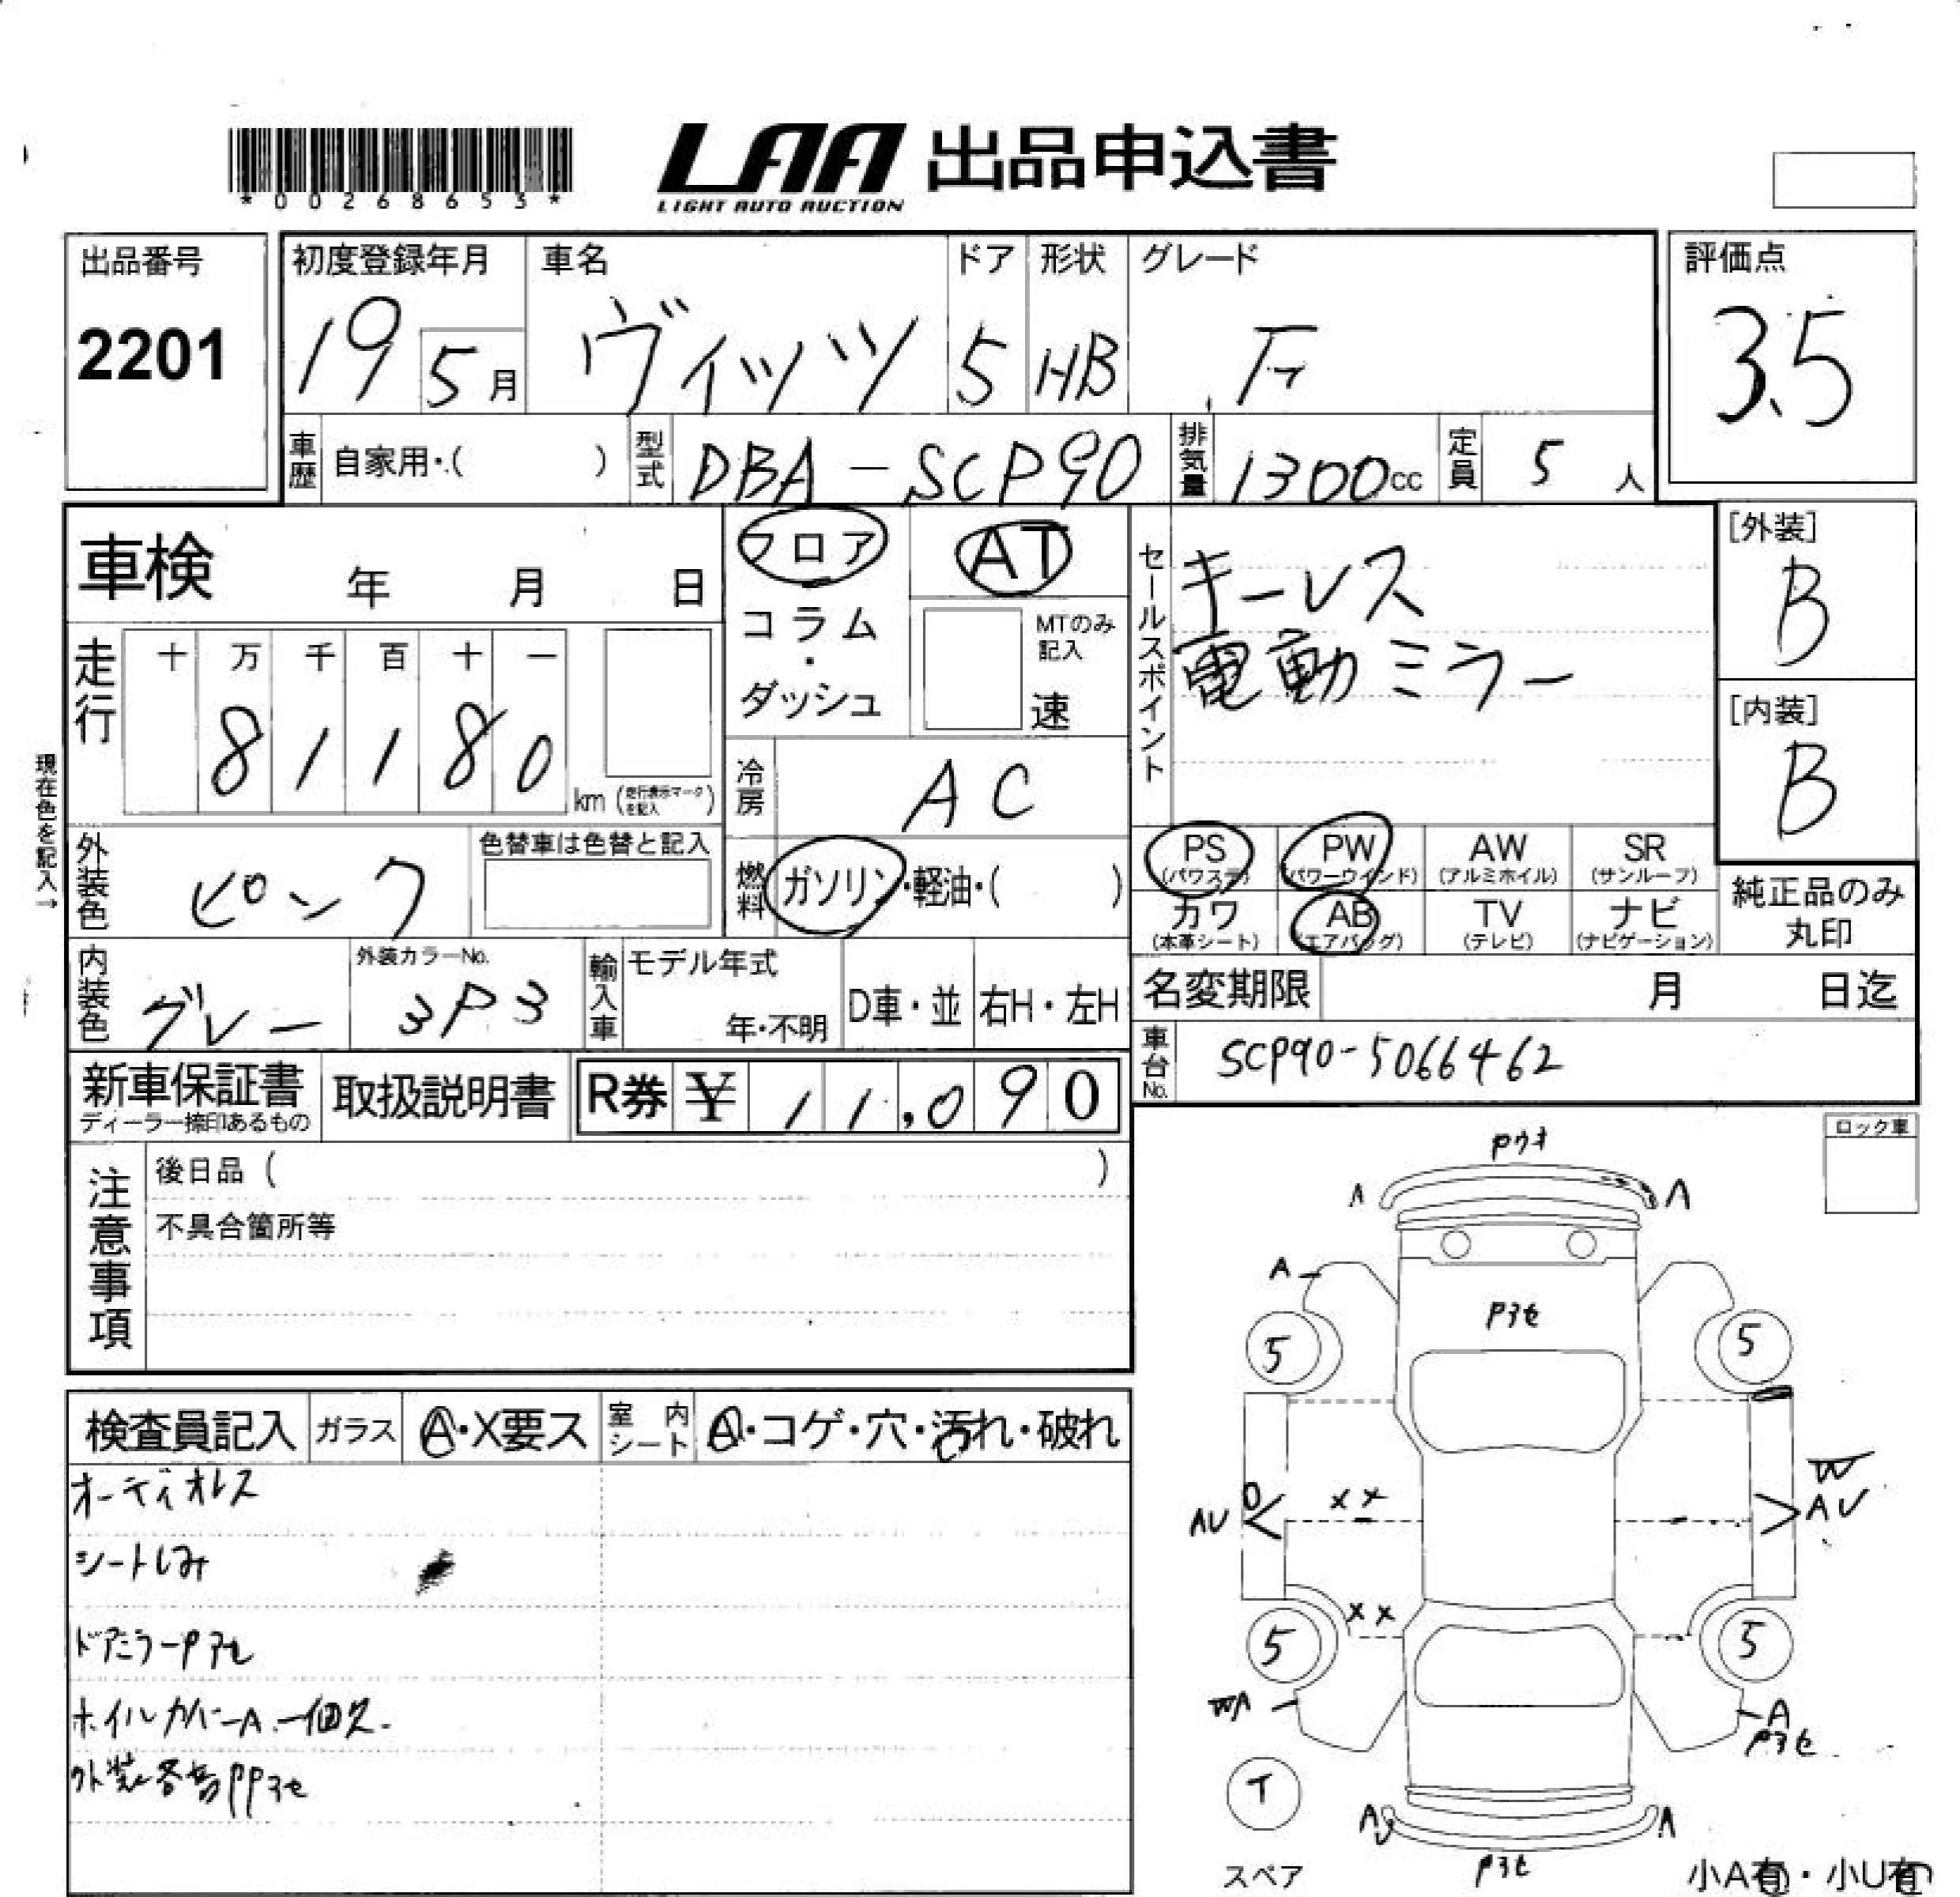 *00268653*
LAA 出品申込書
LIGHT AUTO AUCTION
出品番号
2201
初度登録年月
19 5月
車名
ヴィッツ
ドア
5
形状
HB
グレード
F
評価点
3.5
車歴 自家用・( )
型式 DBA-SCP90
排気量 1300cc
定員 5 人
車検 年 月 日
フロア・コラム・ダッシュ
AT
MTのみ記入
速
セールスポイント
キーレス
電動ミラー
[外装]
B
[内装]
B
走行
十 万 千 百 十 一
8 1 1 8 0
km (走行表示マークを記入)
現在色を記入→
冷房 AC
外装色 ピンク
色替車は色替と記入
燃料 ガソリン・軽油・( )
PS (パワステ)
PW (パワーウインド)
AW (アルミホイル)
SR (サンルーフ)
カワ (本革シート)
AB (エアバッグ)
TV (テレビ)
ナビ (ナビゲーション)
純正品のみ
丸印
内装色 グレー
外装カラーNo.
3P3
輸入車
モデル年式
年・不明
D車・並
右H・左H
名変期限 月 日迄
車台No. SCP90-5066462
新車保証書
ディーラー捺印あるもの
取扱説明書
R券 ¥ 11,090
ロック車
注意事項
後日品 ( )
不具合箇所等
検査員記入
ガラス A・X要ス
室内シート A・コゲ・穴・汚れ・破れ
オーディオレス
シートしみ
ドアミラーPヨセ
ホイルカバーA.一個欠.
外装各部PPヨセ
A A
A
Pヨセ
5 5
W
AU XX AU
XX
5 5
WA A
Pヨセ
T
A A
スペア
Pヨセ
小A有・小U有